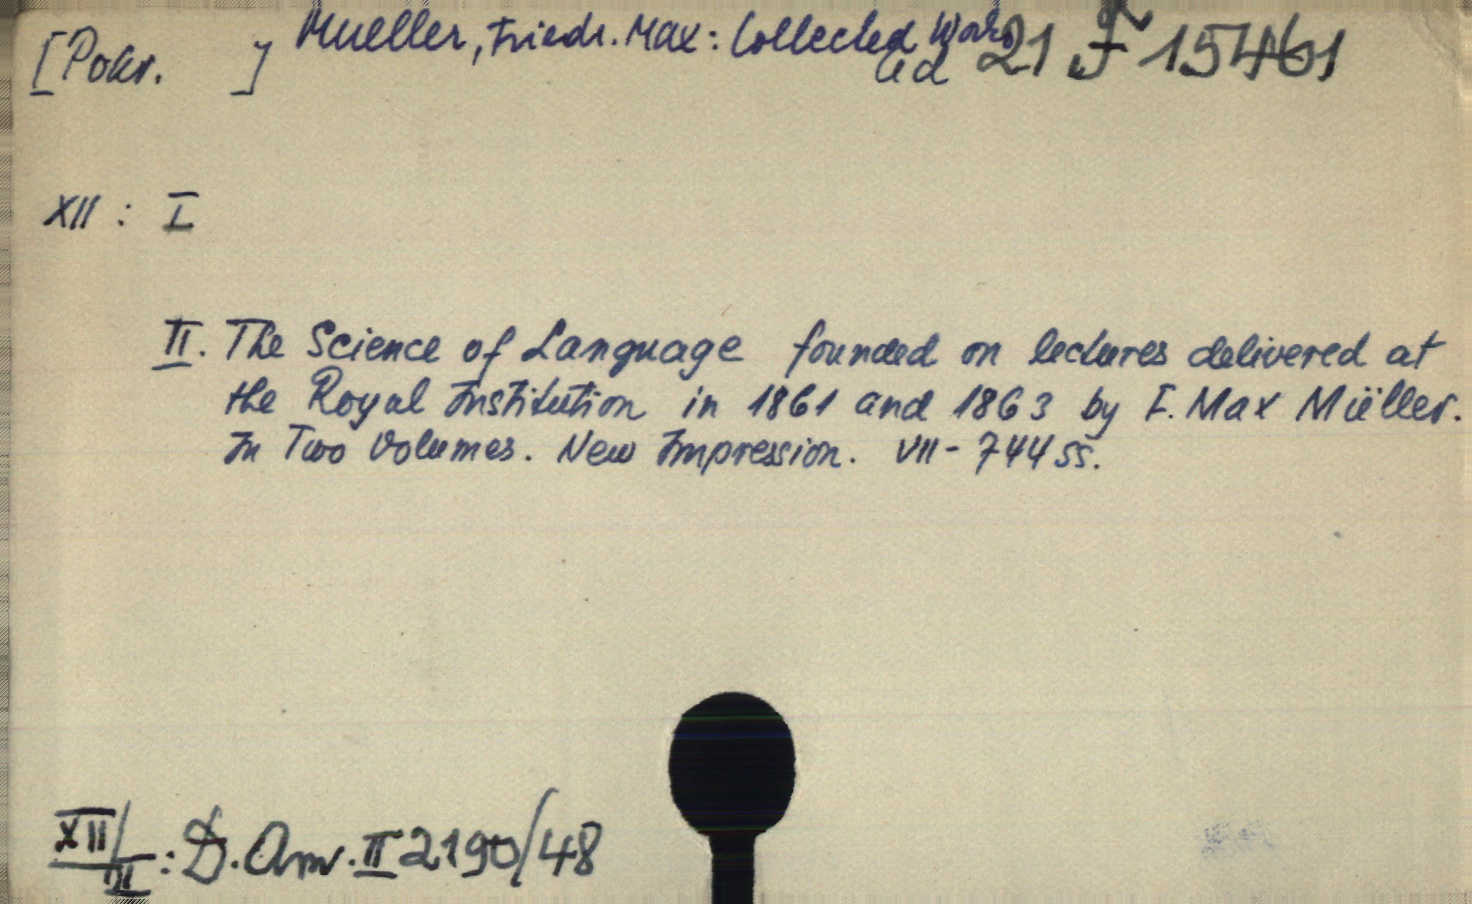 [Pokr. ] Mueller, Friedr. Max: Collected Works
ad 21 F 15461
XII : I
II. The Science of Language founded on lectures delivered at
the Royal Institution in 1861 and 1863 by F. Max Müller.
In Two Volumes. New Impression. VII - 744 SS.
XII/II : D. Am. II 2190/48